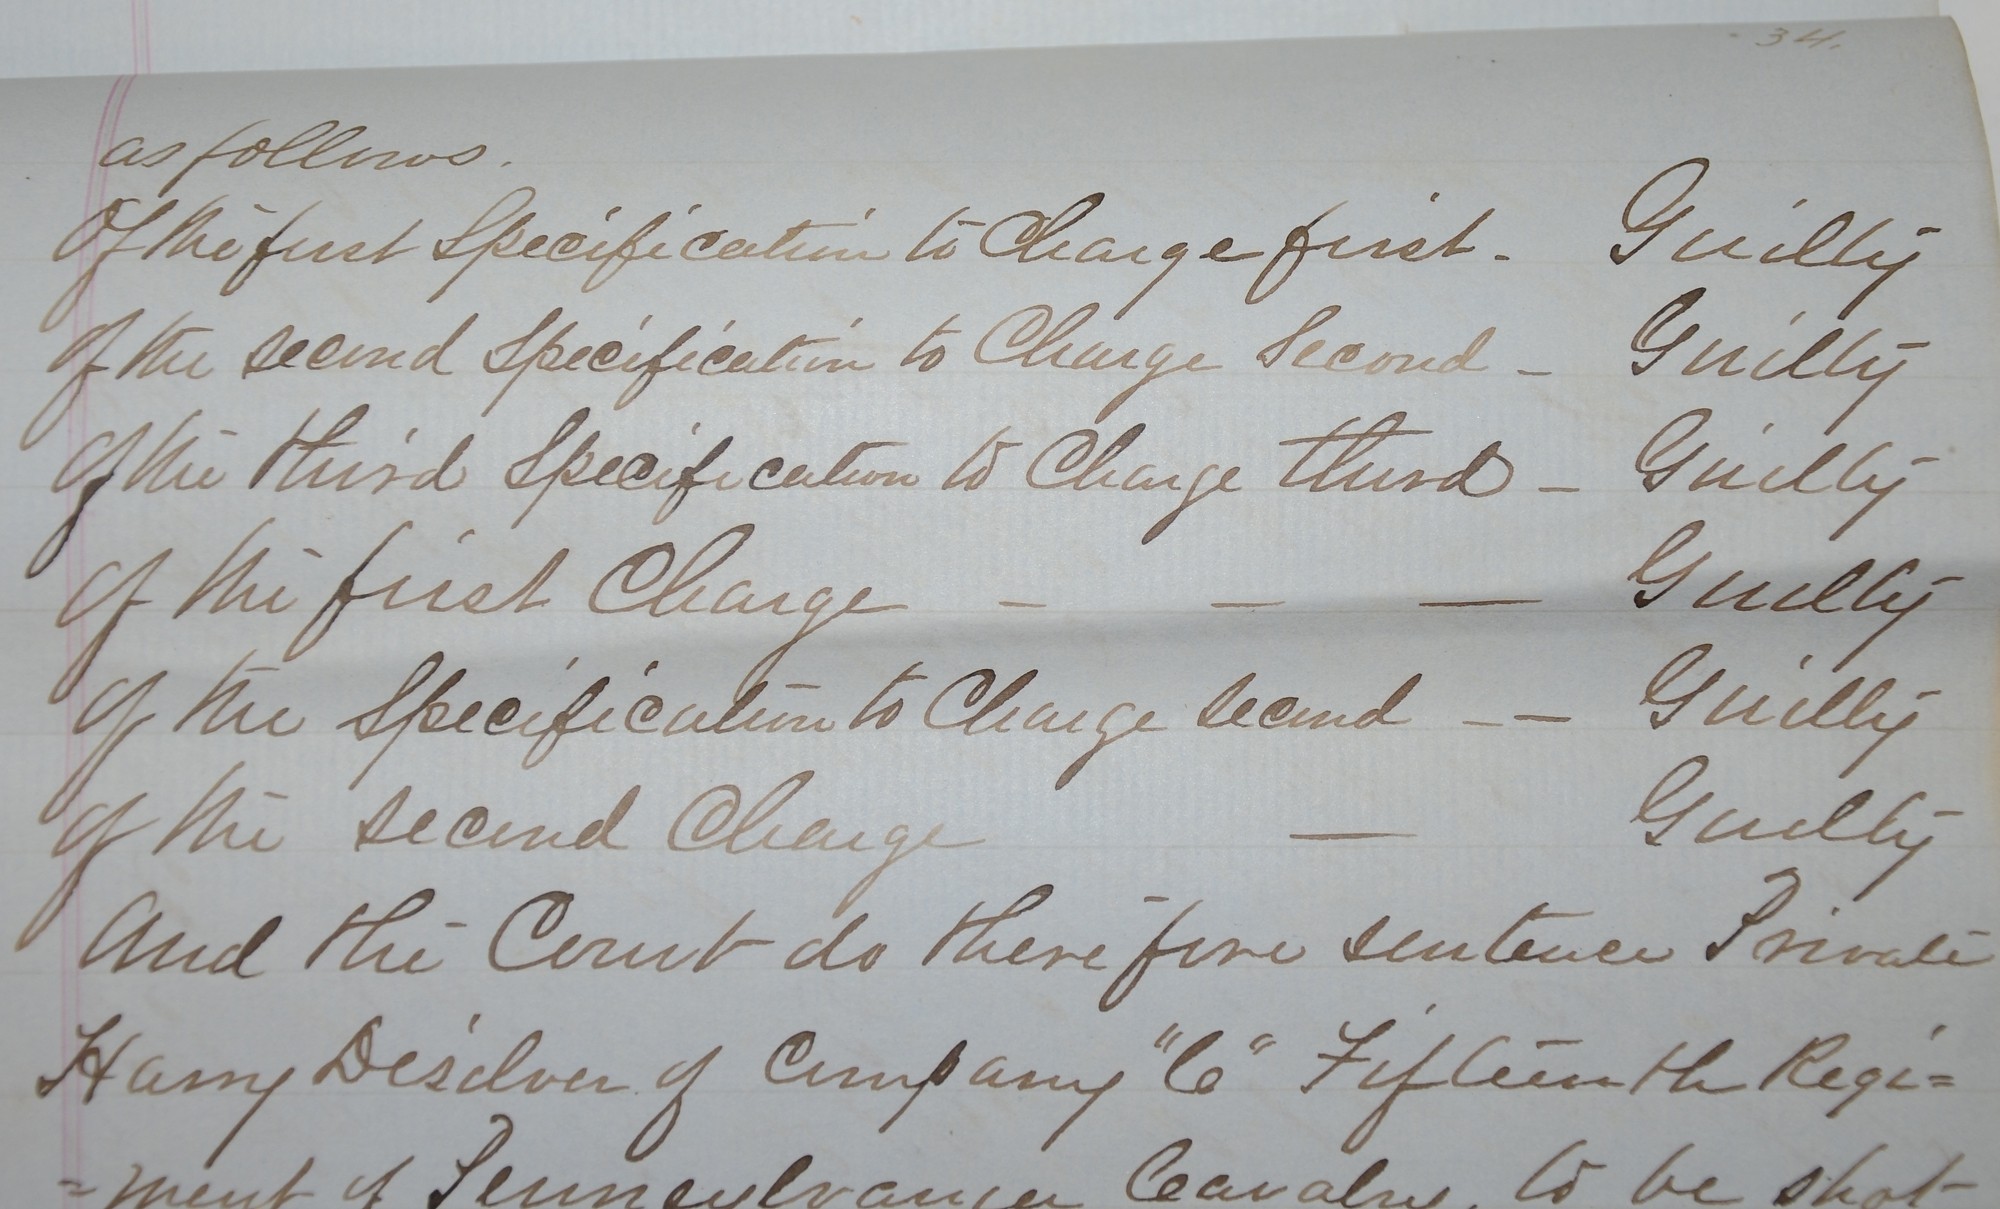 34.
as follows.
Of the first Specification to Charge first - Guilty
Of the second Specification to Charge Second - Guilty
Of the third Specification to Charge third - Guilty
Of the first Charge - - - Guilty
Of the Specification to Charge second - - Guilty
Of the second Charge - Guilty
And the Court do therefore sentence Private
Harry Disolver of Company "C" Fifteenth Regi=
=ment of Pennsylvania Cavalry, to be shot